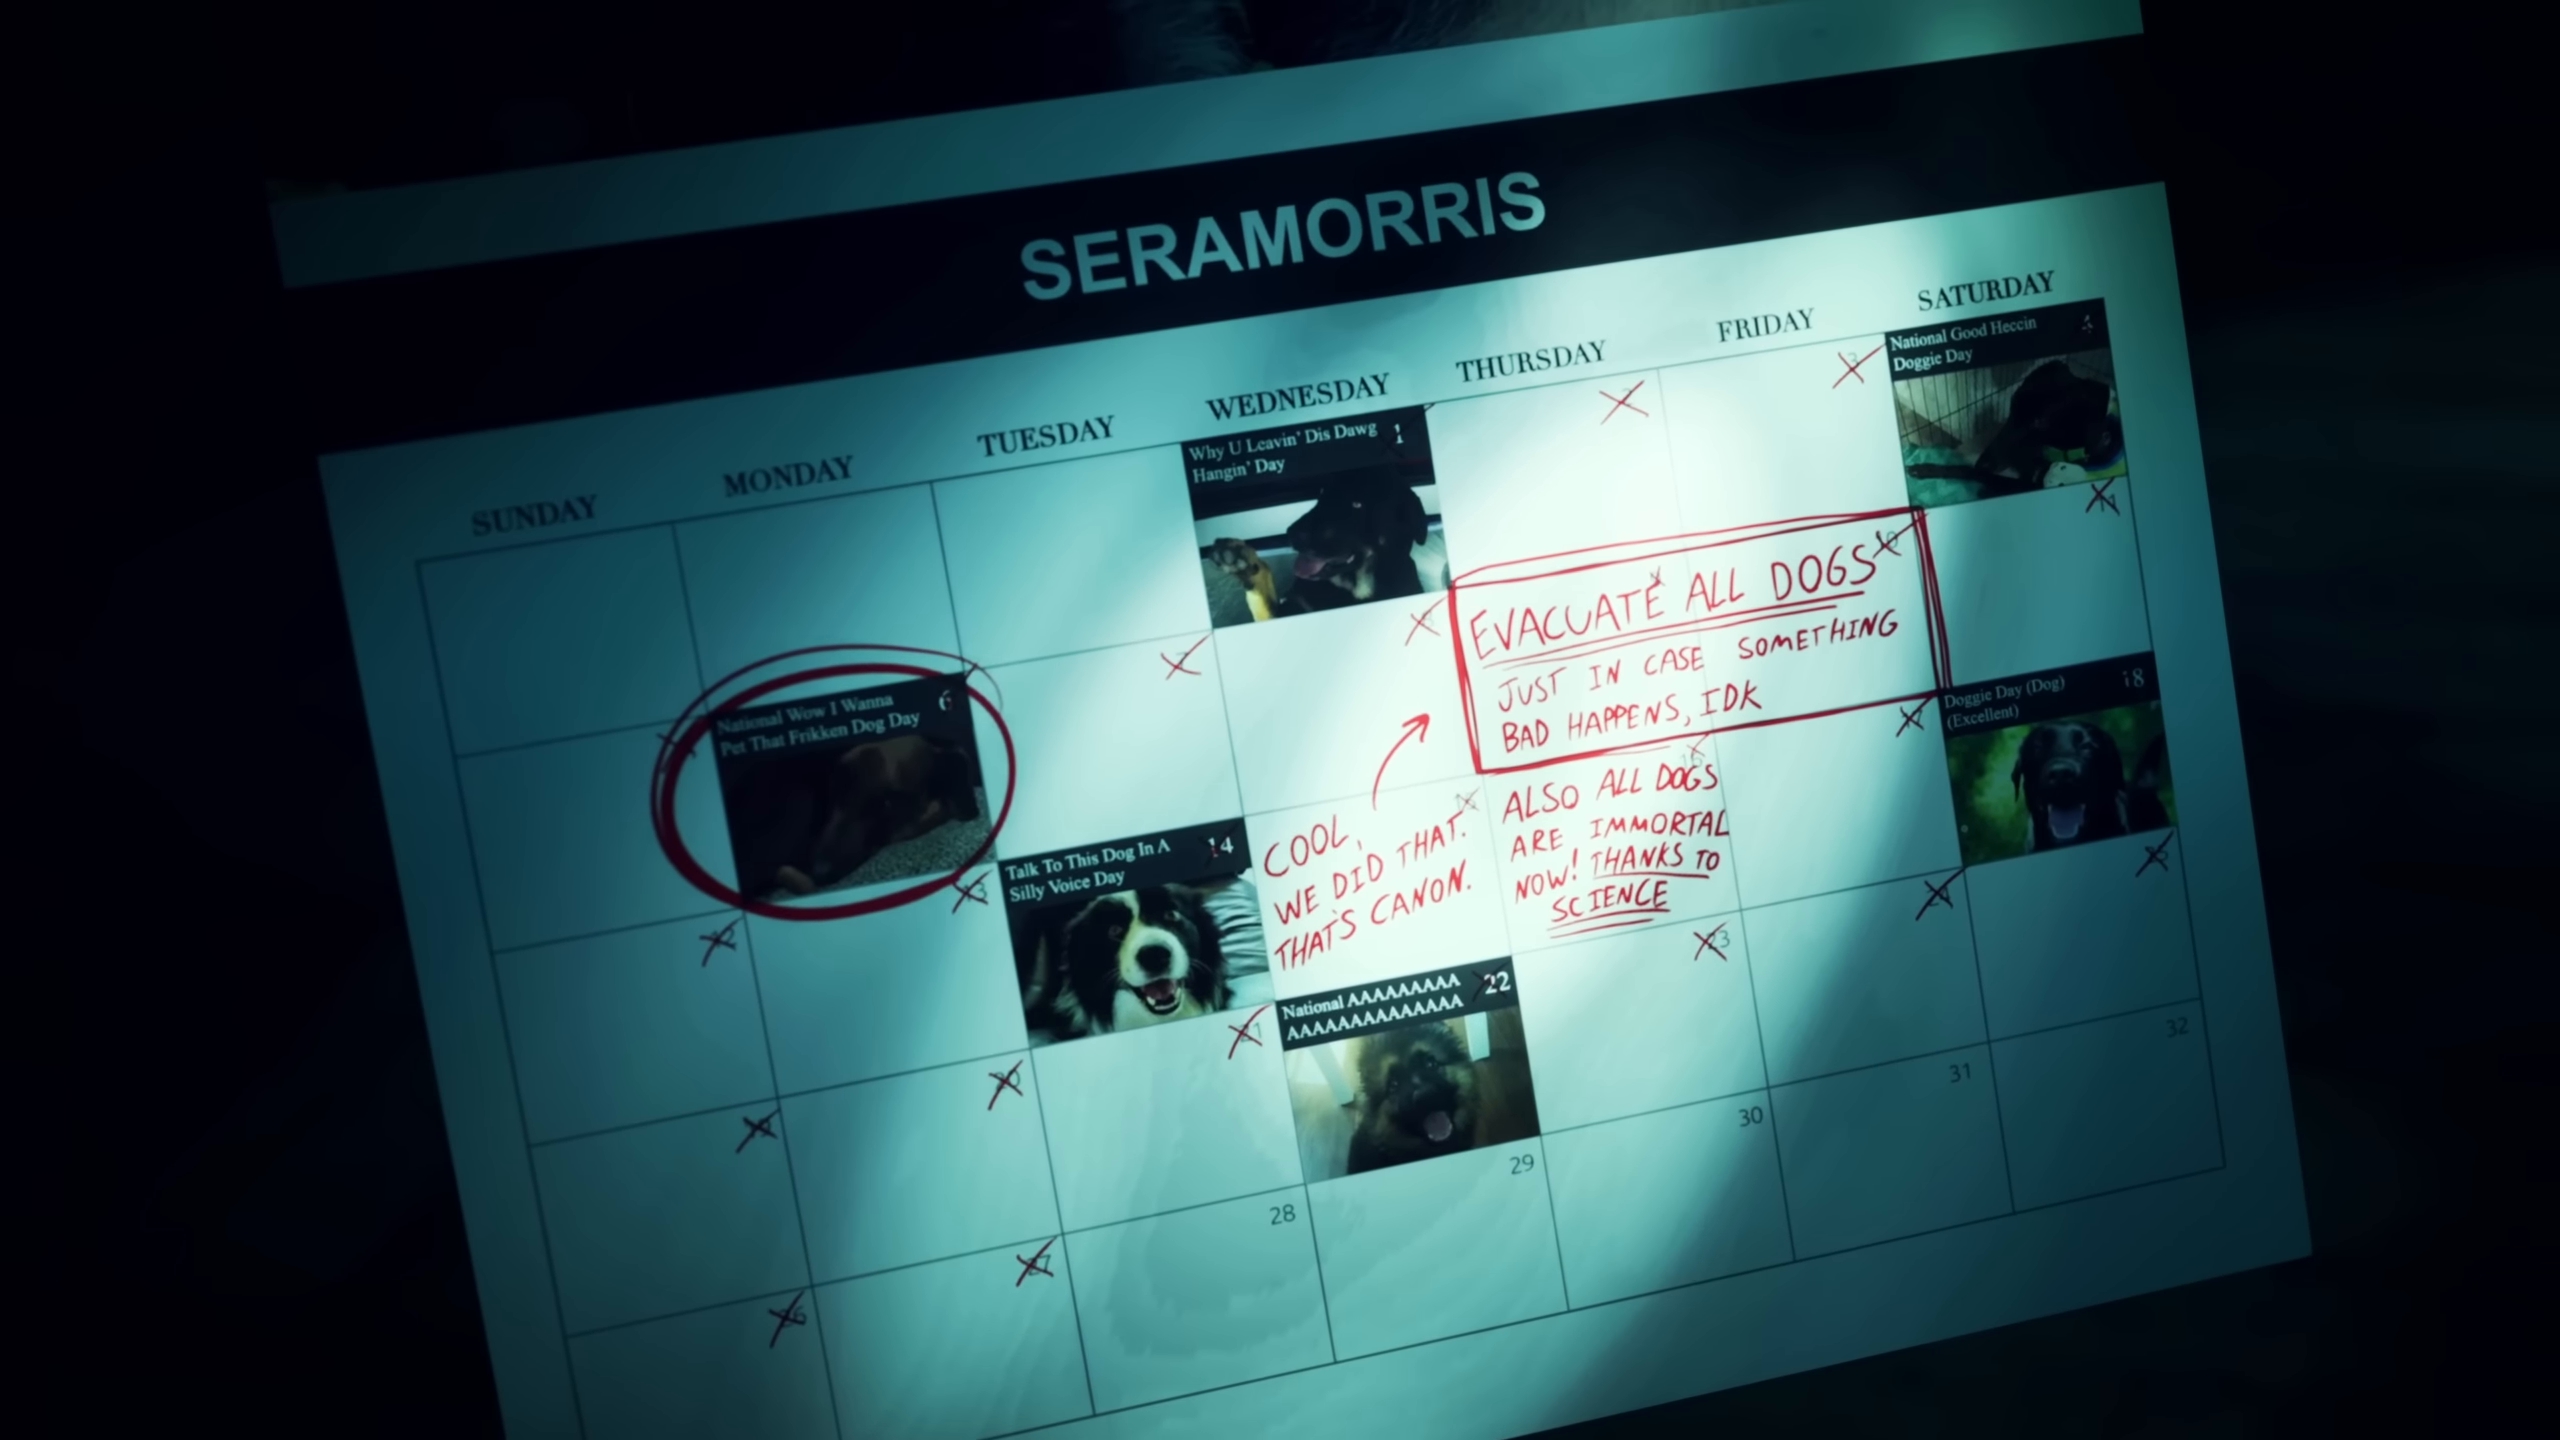 SERAMORRIS
SUNDAY MONDAY TUESDAY WEDNESDAY THURSDAY FRIDAY SATURDAY
Why U Leavin' Dis Dawg 1
Hangin' Day
3
National Good Heccin 4
Doggie Day
National Wow I Wanna 6
Pet That Frikken Dog Day
7
EVACUATE ALL DOGS
JUST IN CASE SOMETHING
BAD HAPPENS, IDK
12
13
Talk To This Dog In A 14
Silly Voice Day
COOL,
WE DID THAT.
THAT'S CANON.
16
ALSO ALL DOGS
ARE IMMORTAL
NOW! THANKS TO
SCIENCE
17
Doggie Day (Dog) 18
(Excellent)
19
20
21
National AAAAAAAAA 22
AAAAAAAAAAAAAA
23
24
26
27
28
29
30
31
32